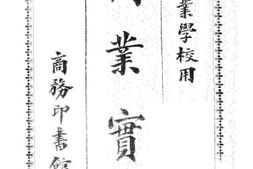 業學校用
業實
商務印書館